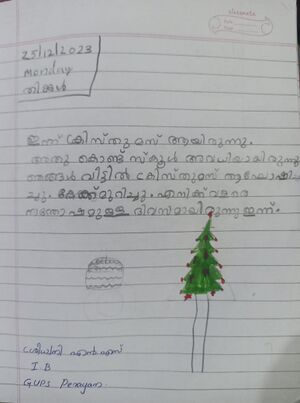 classmate
Date
Page
25/12/2023
Monday
തിങ്കൾ
ഇന്ന് ക്രിസ്തുമസ് ആയിരുന്നു.
അതു കൊണ്ട് സ്കൂൾ അവധിയായിരുന്നു
ഞങ്ങൾ വീട്ടിൽ ക്രിസ്തുമസ് ആഘോഷിച
ച്ചു. കേക്ക്മുറിച്ചു. എനിക്ക് വളരെ
സന്തോഷമുള്ള ദിവസമായിരുന്നു ഇന്ന്.
എൻ എസ്
I B
GUPS Perayam